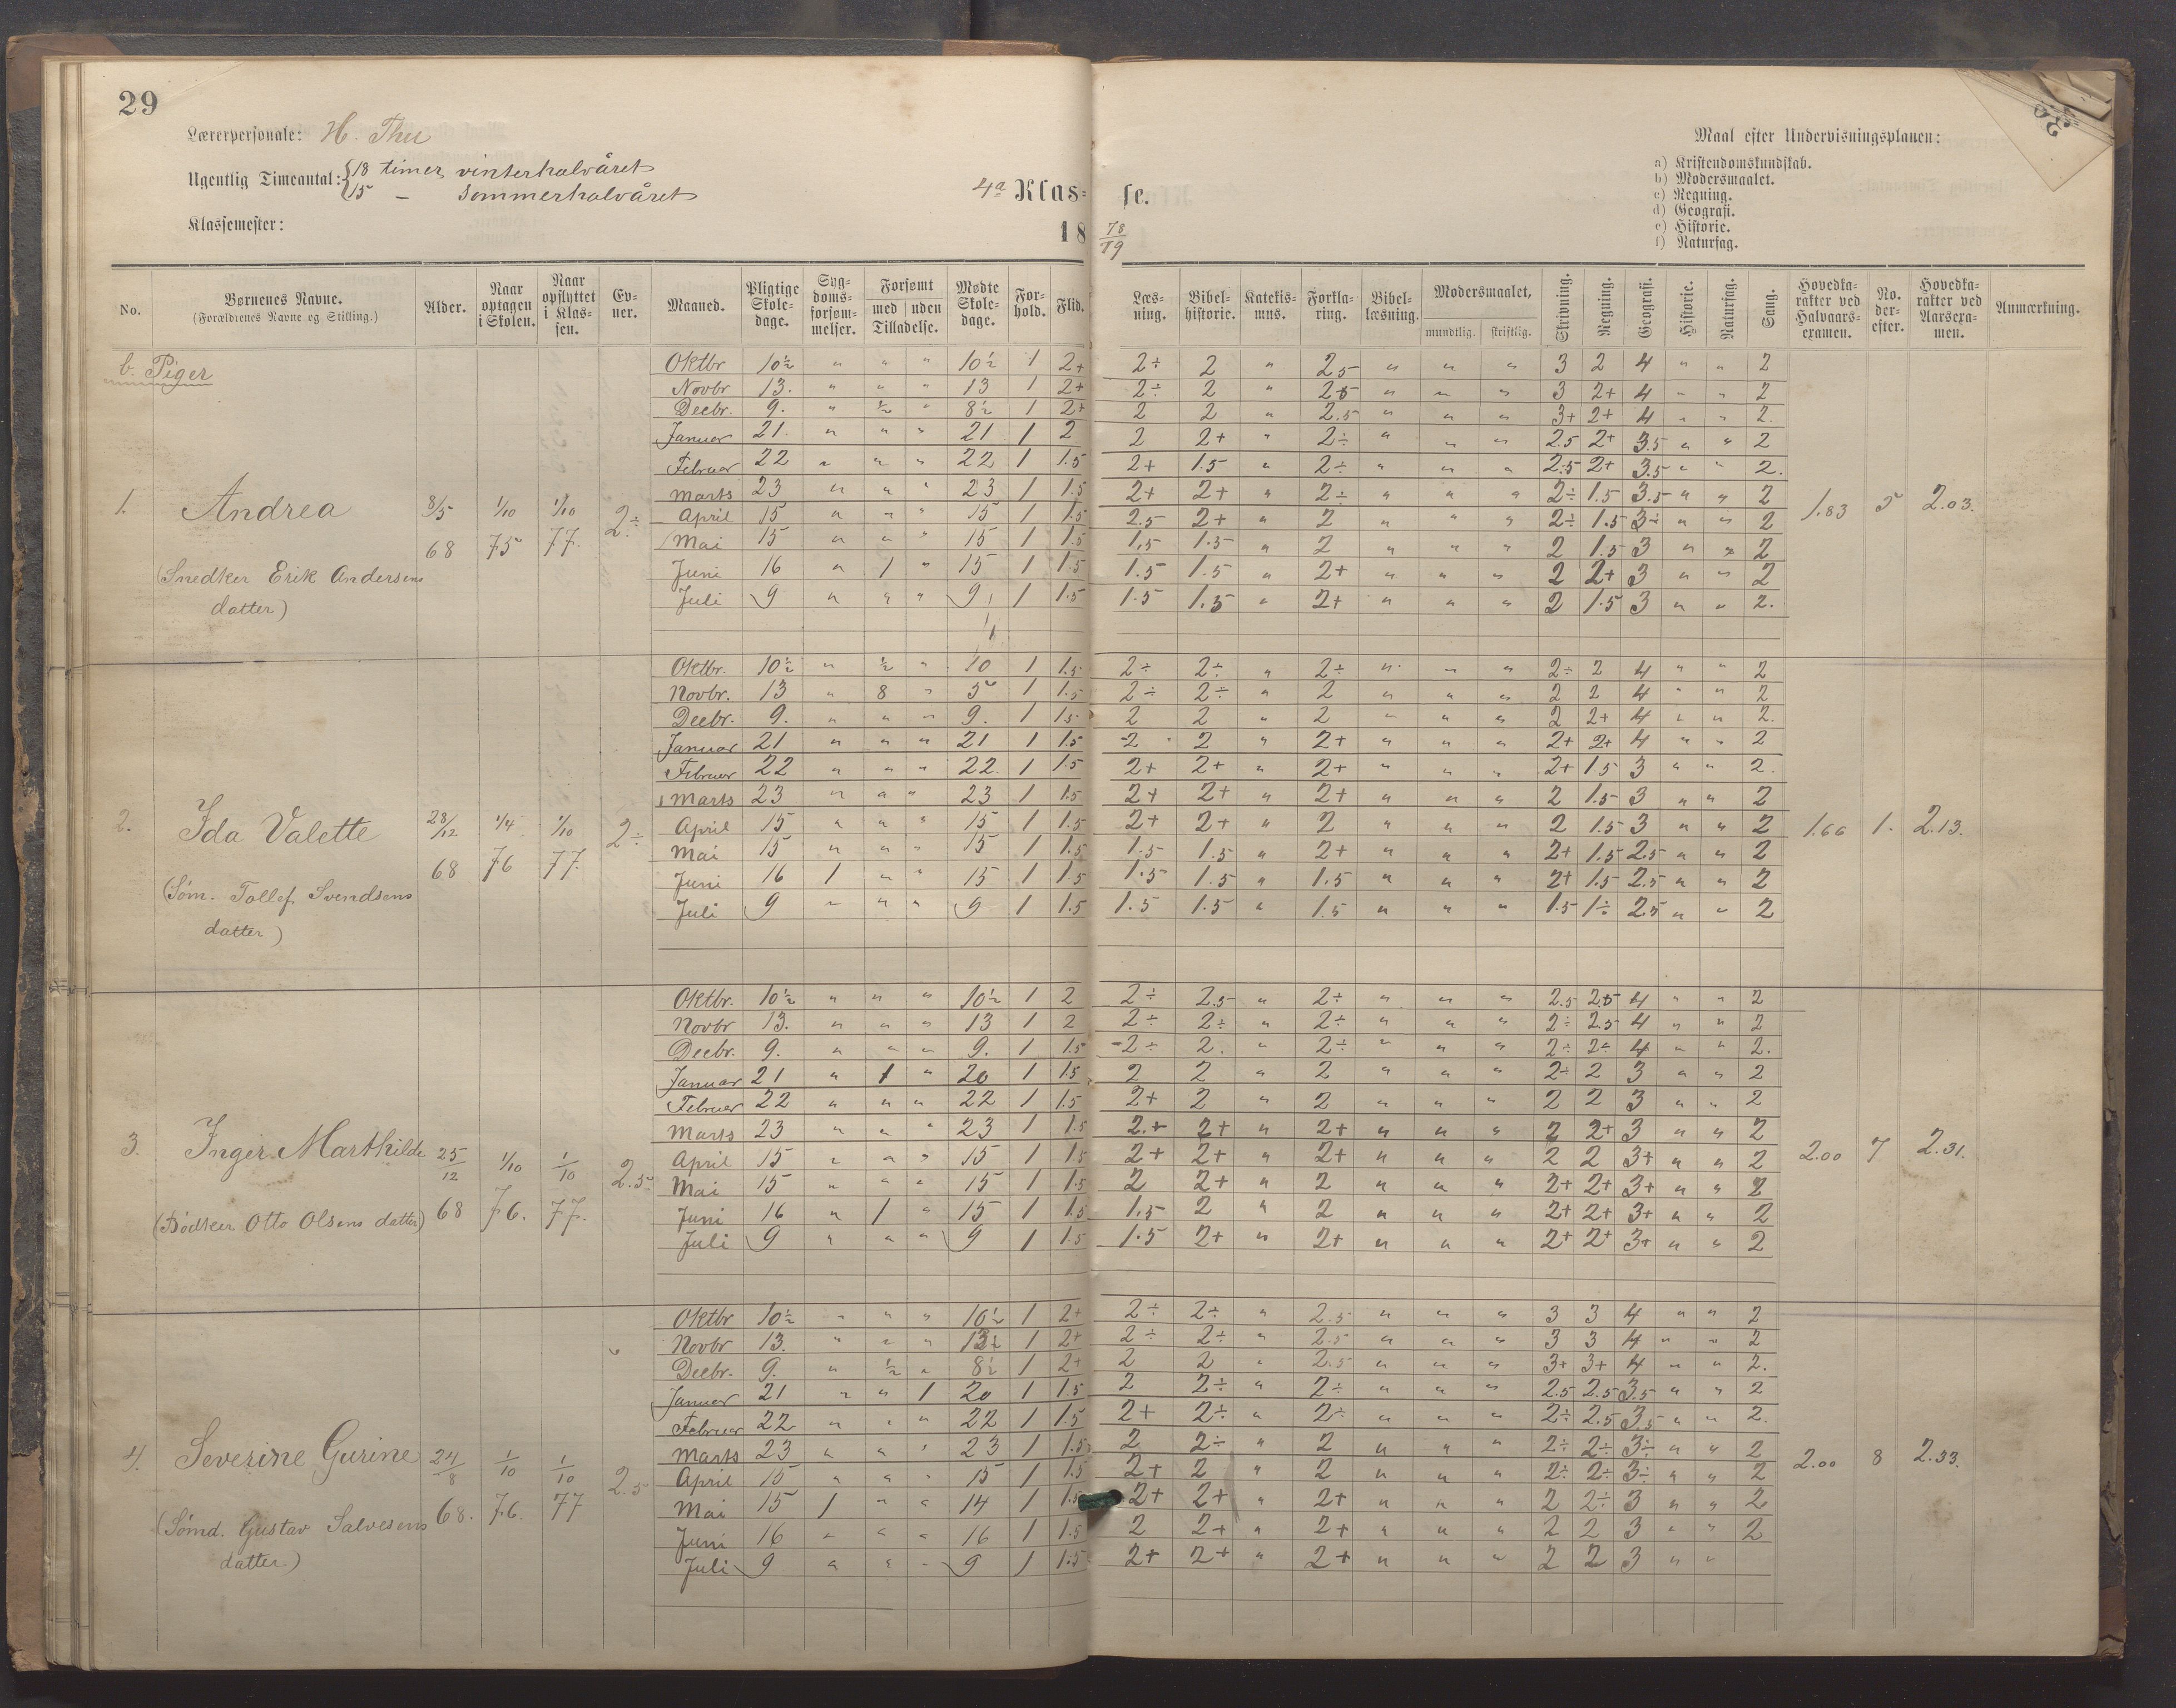 29
Lærerpersonale: H. Thu
Ugentlig Timeantal: 18 timer vinterhalvåret
15 — sommerhalvåret
Klassemester:
4a Klas=se.
18 78/79
Maal efter Undervisningsplanen:
a) Kristendomskundskab.
b) Modersmaalet.
c) Regning.
d) Geografi.
e) Historie.
f) Naturfag.
No. | Børnenes Navne. (Forældrenes Navne og Stilling.) | Alder. | Naar optagen i Skolen. | Naar opflyttet i Klassen. | Evner. | Maaned. | Pligtige Skoledage. | Sygdomsforsømmelser. | Forsømt med uden Tilladelse. | Mødte Skoledage. | Forhold. | Flid. | Læsning. | Bibelhistorie. | Katekismus. | Forklaring. | Bibellæsning. | Modersmaalet, mundtlig. skriftlig. | Skrivning. | Regning. | Geografi. | Historie. | Naturfag. | Sang. | Hovedkarakter ved Halvaarsexamen. | No. derefter. | Hovedkarakter ved Aarsexamen. | Anmærkning.
b. Piger
1. Andrea 8/5 68 1/10 75 1/10 77. 2÷ 1.83 5 2.03.
(Snedker Erik Andersens datter)
Oktbr 10½ " " " 10½ 1 2+ 2÷ 2 " 2.5 " " " 3 2 4 " " 2
Novbr 13. " " " 13 1 2+ 2÷ 2 " 2.5 " " " 3 2+ 4 " " 2
Decbr. 9. " ½ " 8½ 1 2+ 2 2 " 2.5 " " " 3+ 2+ 4 " " 2.
Januar 21 " " " 21 1 2 2 2+ " 2÷ " " " 2.5 2+ 3.5 " " 2
Februar 22 " " " 22 1 1.5 2+ 1.5 " 2÷ " " " 2.5 2+ 3.5 " " 2.
Marts 23 " " " 23 1 1.5 2+ 2+ " 2÷ " " " 2÷ 1.5 3.5 " " 2
April 15 " " " 15 1 1.5 2.5 2+ " 2 " " " 2÷ 1.5 3÷ " " 2
Mai 15 " " " 15 1 1.5 1.5 1.5 " 2 " " " 2 1.5 3 " " 2
Juni 16 " 1 " 15 1 1.5 1.5 1.5 " 2+ " " " 2 2+ 3 " " 2
Juli 9 " " " 9 1 1.5 1.5 1.5 " 2+ " " " 2 1.5 3 " " 2.
2. Ida Valette 28/12 68 1/4 76 1/10 77. 2÷ 1.66 1. 2.13.
(Søm. Tollef Svendsens datter)
Oktbr. 10½ " ½ " 10 1 1.5 2÷ 2÷ " 2÷ " " " 2÷ 2 4 " " 2
Novbr. 13 " 8 " 5 1 1.5 2÷ 2÷ " 2 " " " 2 2 4 " " 2
Decbr. 9. " " " 9. 1 1.5 2 2 " 2 " " " 2 2+ 4 " " 2.
Januar 21 " " " 21 1 1.5 2 2 " 2+ " " " 2+ 2+ 4 " " 2
Februar 22 " " " 22. 1 1.5 2+ 2+ " 2+ " " " 2+ 1.5 3 " " 2.
Marts 23 " " " 23 1 1.5 2+ 2+ " 2+ " " " 2 1.5 3 " " 2
April 15 " " " 15 1 1.5 2+ 2+ " 2 " " " 2 1.5 3 " " 2
Mai 15 " " " 15 1 1.5 1.5 1.5 " 2+ " " " 2+ 1.5 2.5 " " 2
Juni 16 1 " " 15 1 1.5 1.5 1.5 " 1.5 " " " 2+ 1.5 2.5 " " 2
Juli 9 " " " 9 1 1.5 1.5 1.5 " 1.5 " " " 1.5 1÷ 2.5 " " 2
3. Inger Marthilde 25/12 68 1/10 76. 1/10 77. 2.5 2.00 7 2.31.
(Bødker Otto Olsens datter)
Oktbr. 10½ " " " 10½ 1 2 2÷ 2.5 " 2÷ " " " 2.5 2.5 4 " " 2
Novbr 13. " " " 13 1 2 2÷ 2÷ " 2÷ " " " 2÷ 2.5 4 " " 2
Decbr. 9. " " " 9. 1 1.5 2÷ 2. " 2÷ " " " 2÷ 2÷ 4 " " 2.
Januar 21 " 1 " 20 1 1.5 2 2 " 2 " " " 2÷ 2 3 " " 2
Februar 22 " " " 22 1 1.5 2+ 2 " 2 " " " 2 2 3 " " 2
Marts 23 " " " 23 1 1.5 2.+ 2+ " 2+ " " " 2 2+ 3 " " 2
April 15 " " " 15 1 1.5 2+ 2+ " 2+ " " " 2 2 3+ " " 2
Mai 15 " " " 15 1 1.5 2 2+ " 2 " " " 2+ 2+ 3+ " " 2
Juni 16 " 1 " 15 1 1.5 1.5 2 " 2 " " " 2+ 2+ 3+ " " 2
Juli 9 " " " 9 1 1.5 1.5 2+ " 2+ " " " 2+ 2+ 3+ " " 2
4. Severine Gurine 24/8 68. 1/10 76. 1/10 77 2.5 2.00 8 2.33.
(Sømd. Gustav Salvesens datter)
Oktbr 10½ " " " 10½ 1 2+ 2÷ 2÷ " 2.5 " " " 3 3 4 " " 2
Novbr 13. " " " 13 1 2+ 2÷ 2÷ " 2.5 " " " 3 3 4 " " 2
Decbr. 9. " ½ " 8½ 1 2+ 2 2 " 2.5 " " " 3+ 3+ 4 " " 2.
Januar 21 " " 1 20 1 1.5 2 2÷ " 2÷ " " " 2.5 2.5 3.5 " " 2
Februar 22 " " " 22 1 1.5 2+ 2÷ " 2÷ " " " 2÷ 2.5 3.5 " " 2.
Marts 23 " " " 23 1 1.5 2 2÷ " 2 " " " 2÷ 2÷ 3÷ " " 2
April 15 " " " 15 1 1.5 2+ 2 " 2 " " " 2÷ 2÷ 3÷ " " 2
Mai 15 1 " " 14 1 1.5 2+ 2+ " 2+ " " " 2 2÷ 3 " " 2
Juni 16 " " " 16 1 1.5 2 2+ " 2+ " " " 2 2 3 " " 2
Juli 9 " " " 9 1 1.5 2+ 2+ " 2+ " " " 2 2 3 " "